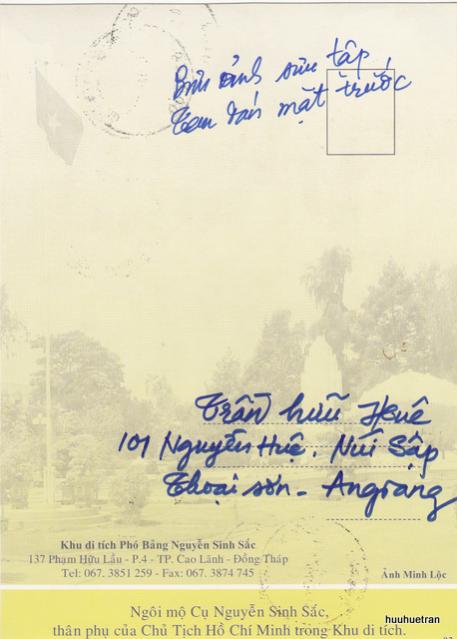 Bưu ảnh sưu tập
Tem dán mặt trước
Trần hữu Huê
101 Nguyễn Huệ. Núi Sập
Thoại sơn - Angiang
Khu di tích Phó Bảng Nguyễn Sinh Sắc
137 Phạm Hữu Lầu - P.4 - TP. Cao Lãnh - Đồng Tháp
Tel: 067. 3851 259 - Fax: 067. 3874 745
Ảnh Minh Lộc
Ngôi mộ Cụ Nguyễn Sinh Sắc,
thân phụ của Chủ Tịch Hồ Chí Minh trong Khu di tích
huuhuetran